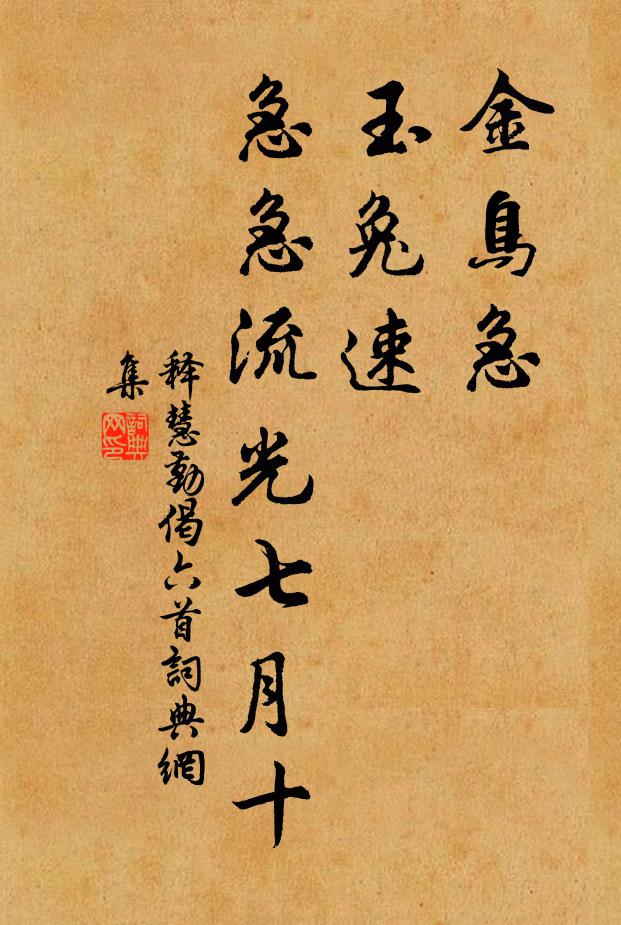 金鳥急
玉兔速
急急流光七月十
释慧勤偈六首詞典網
集
詞典
网印